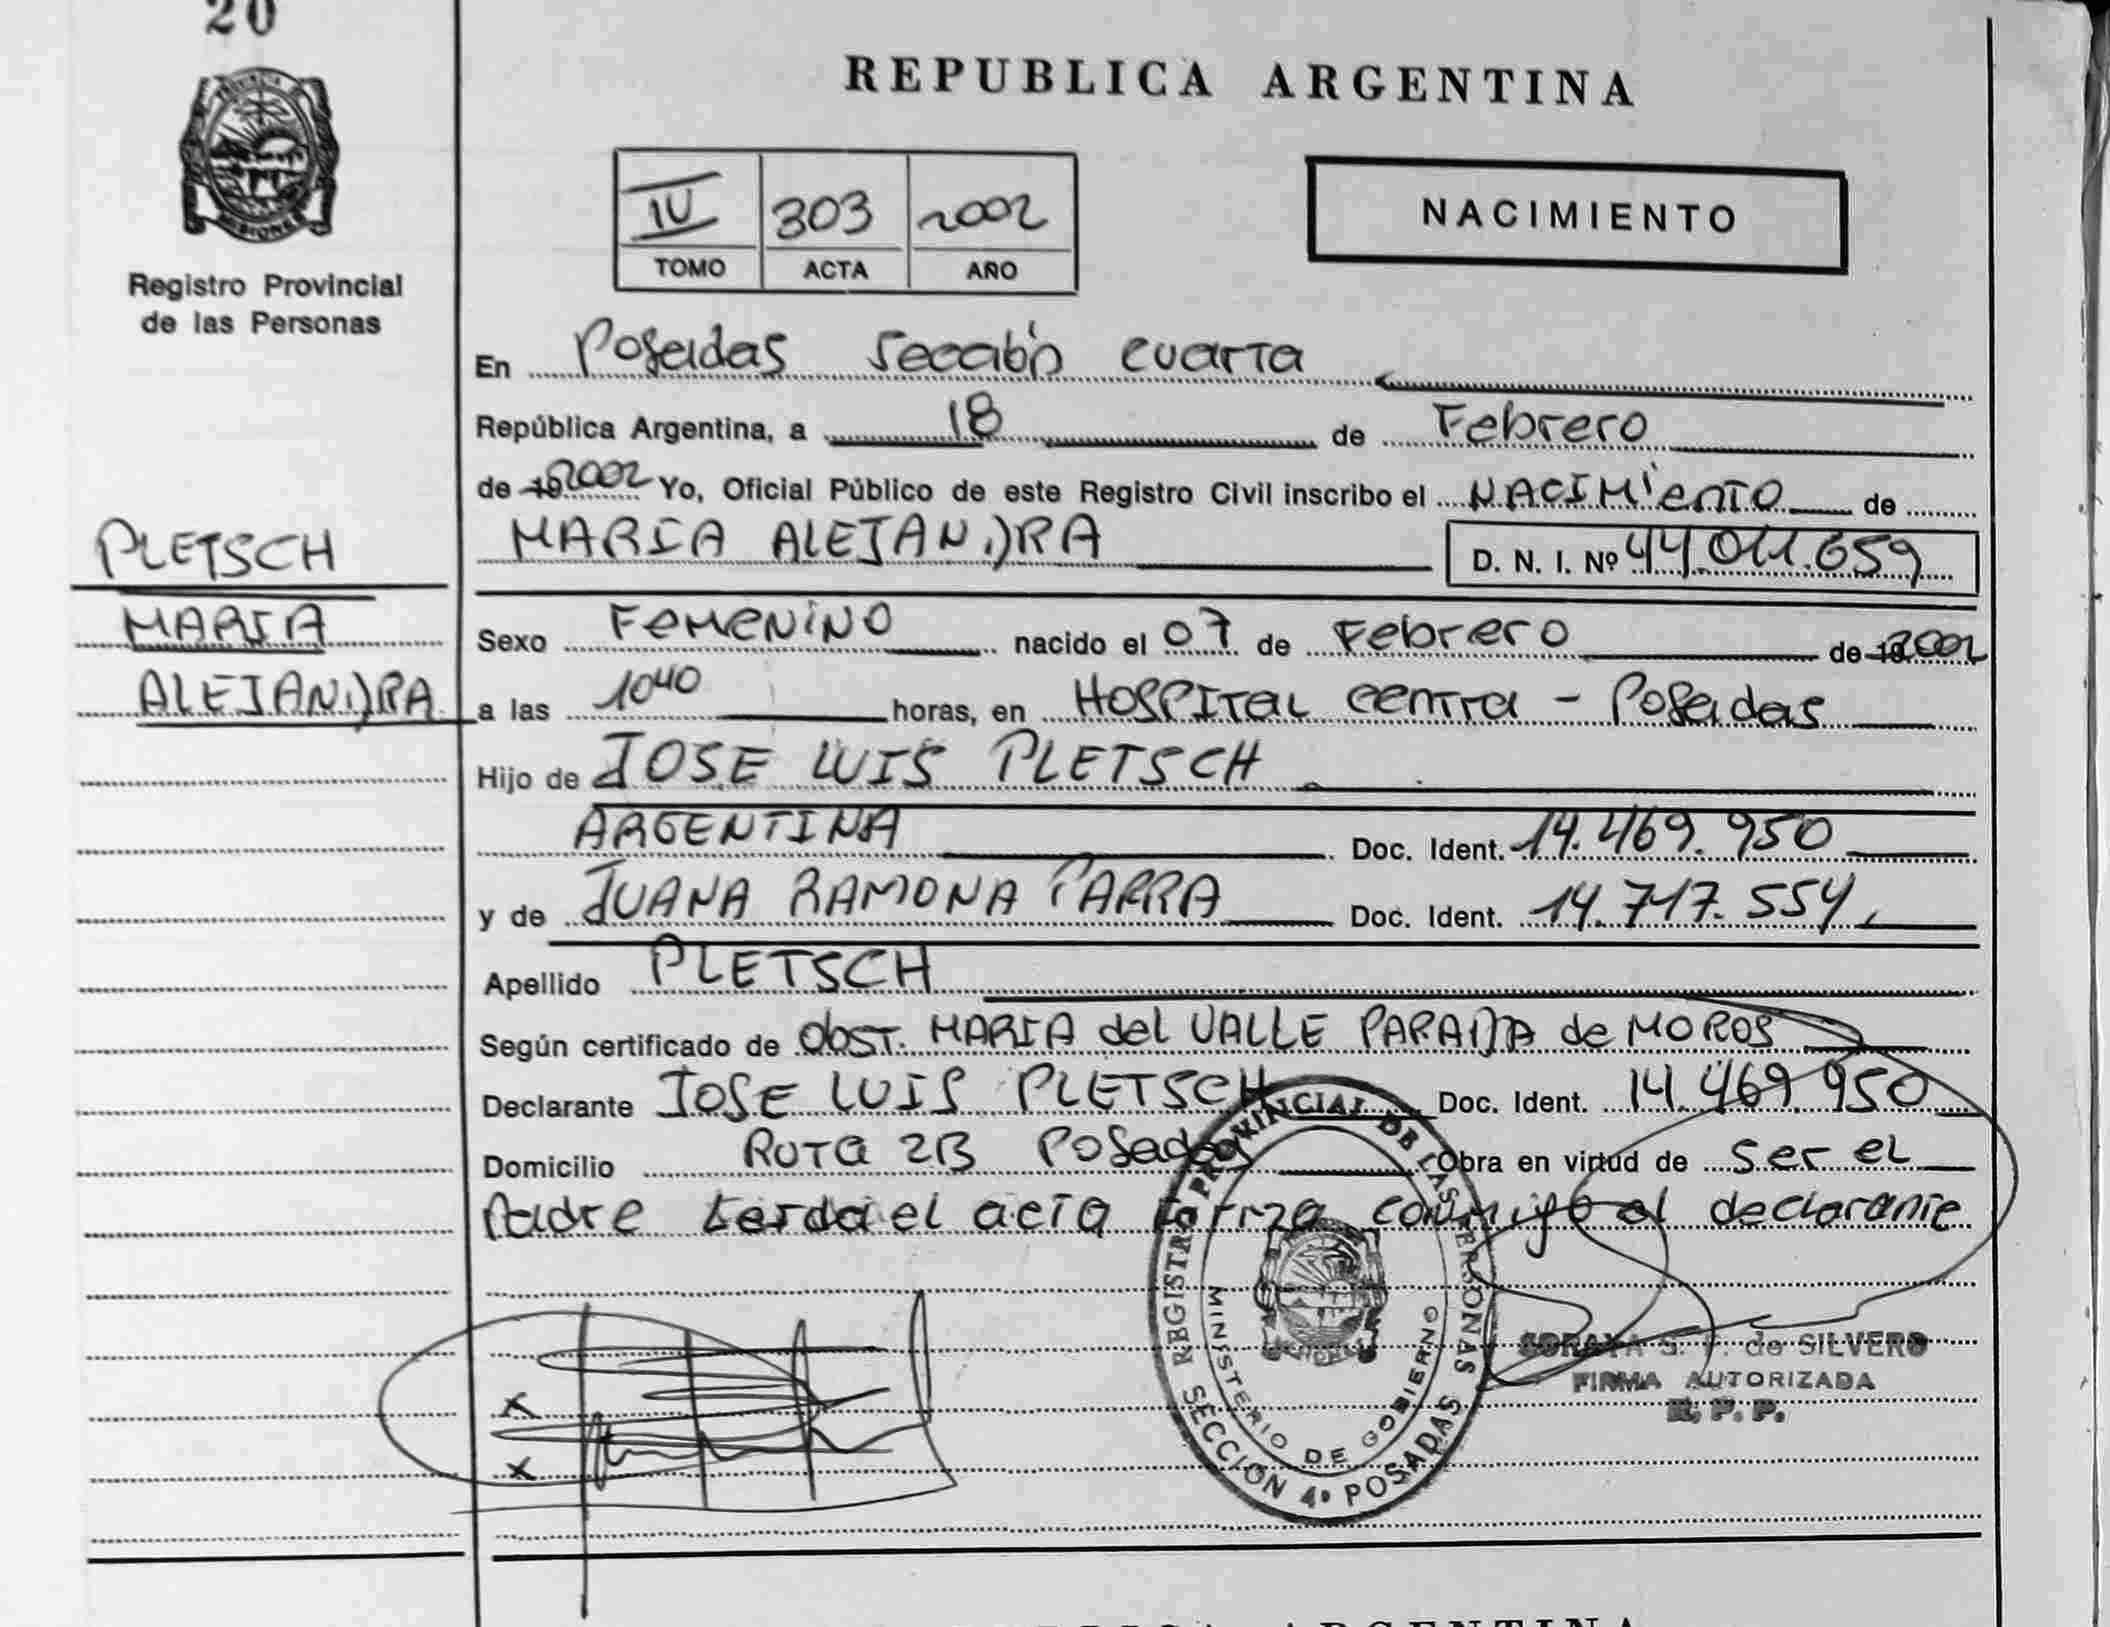 20
REPUBLICA ARGENTINA
IV 303 2002
TOMO ACTA AÑO
NACIMIENTO
Registro Provincial
de las Personas
En Posadas Sección cuarta
República Argentina, a 18 de Febrero
de 19 2002 Yo, Oficial Público de este Registro Civil inscribo el NACIMiento de
MARIA ALEJANDRA D. N. I. Nº 44.011.659
PLETSCH
MARIA
ALEJANDRA
Sexo FeMENiNO nacido el 07 de Febrero de 19 2002
a las 1040 horas, en HOSPITAL centra - Posadas
Hijo de JOSE LUIS PLETSCH
ARGENTINA Doc. Ident. 14.469.950
y de JUANA RAMONA PARRA Doc. Ident. 14.717.554
Apellido PLETSCH
Según certificado de ObST. MARIA del VALLE de MOROS
Declarante JOSE LUIS PLETSCH Doc. Ident. 14.469.950
Domicilio RUTA 213 Posadas Obra en virtud de ser el
Padre el acta firma conmigo el declarante
REGISTRO PROVINCIAL DE LAS PERSONAS
MINISTERIO DE GOBIERNO
SECCION 4º POSADAS
SORAYA S. de SILVERO
FIRMA AUTORIZADA
R. P. P.
x
x
REPUBLICA ARGENTINA